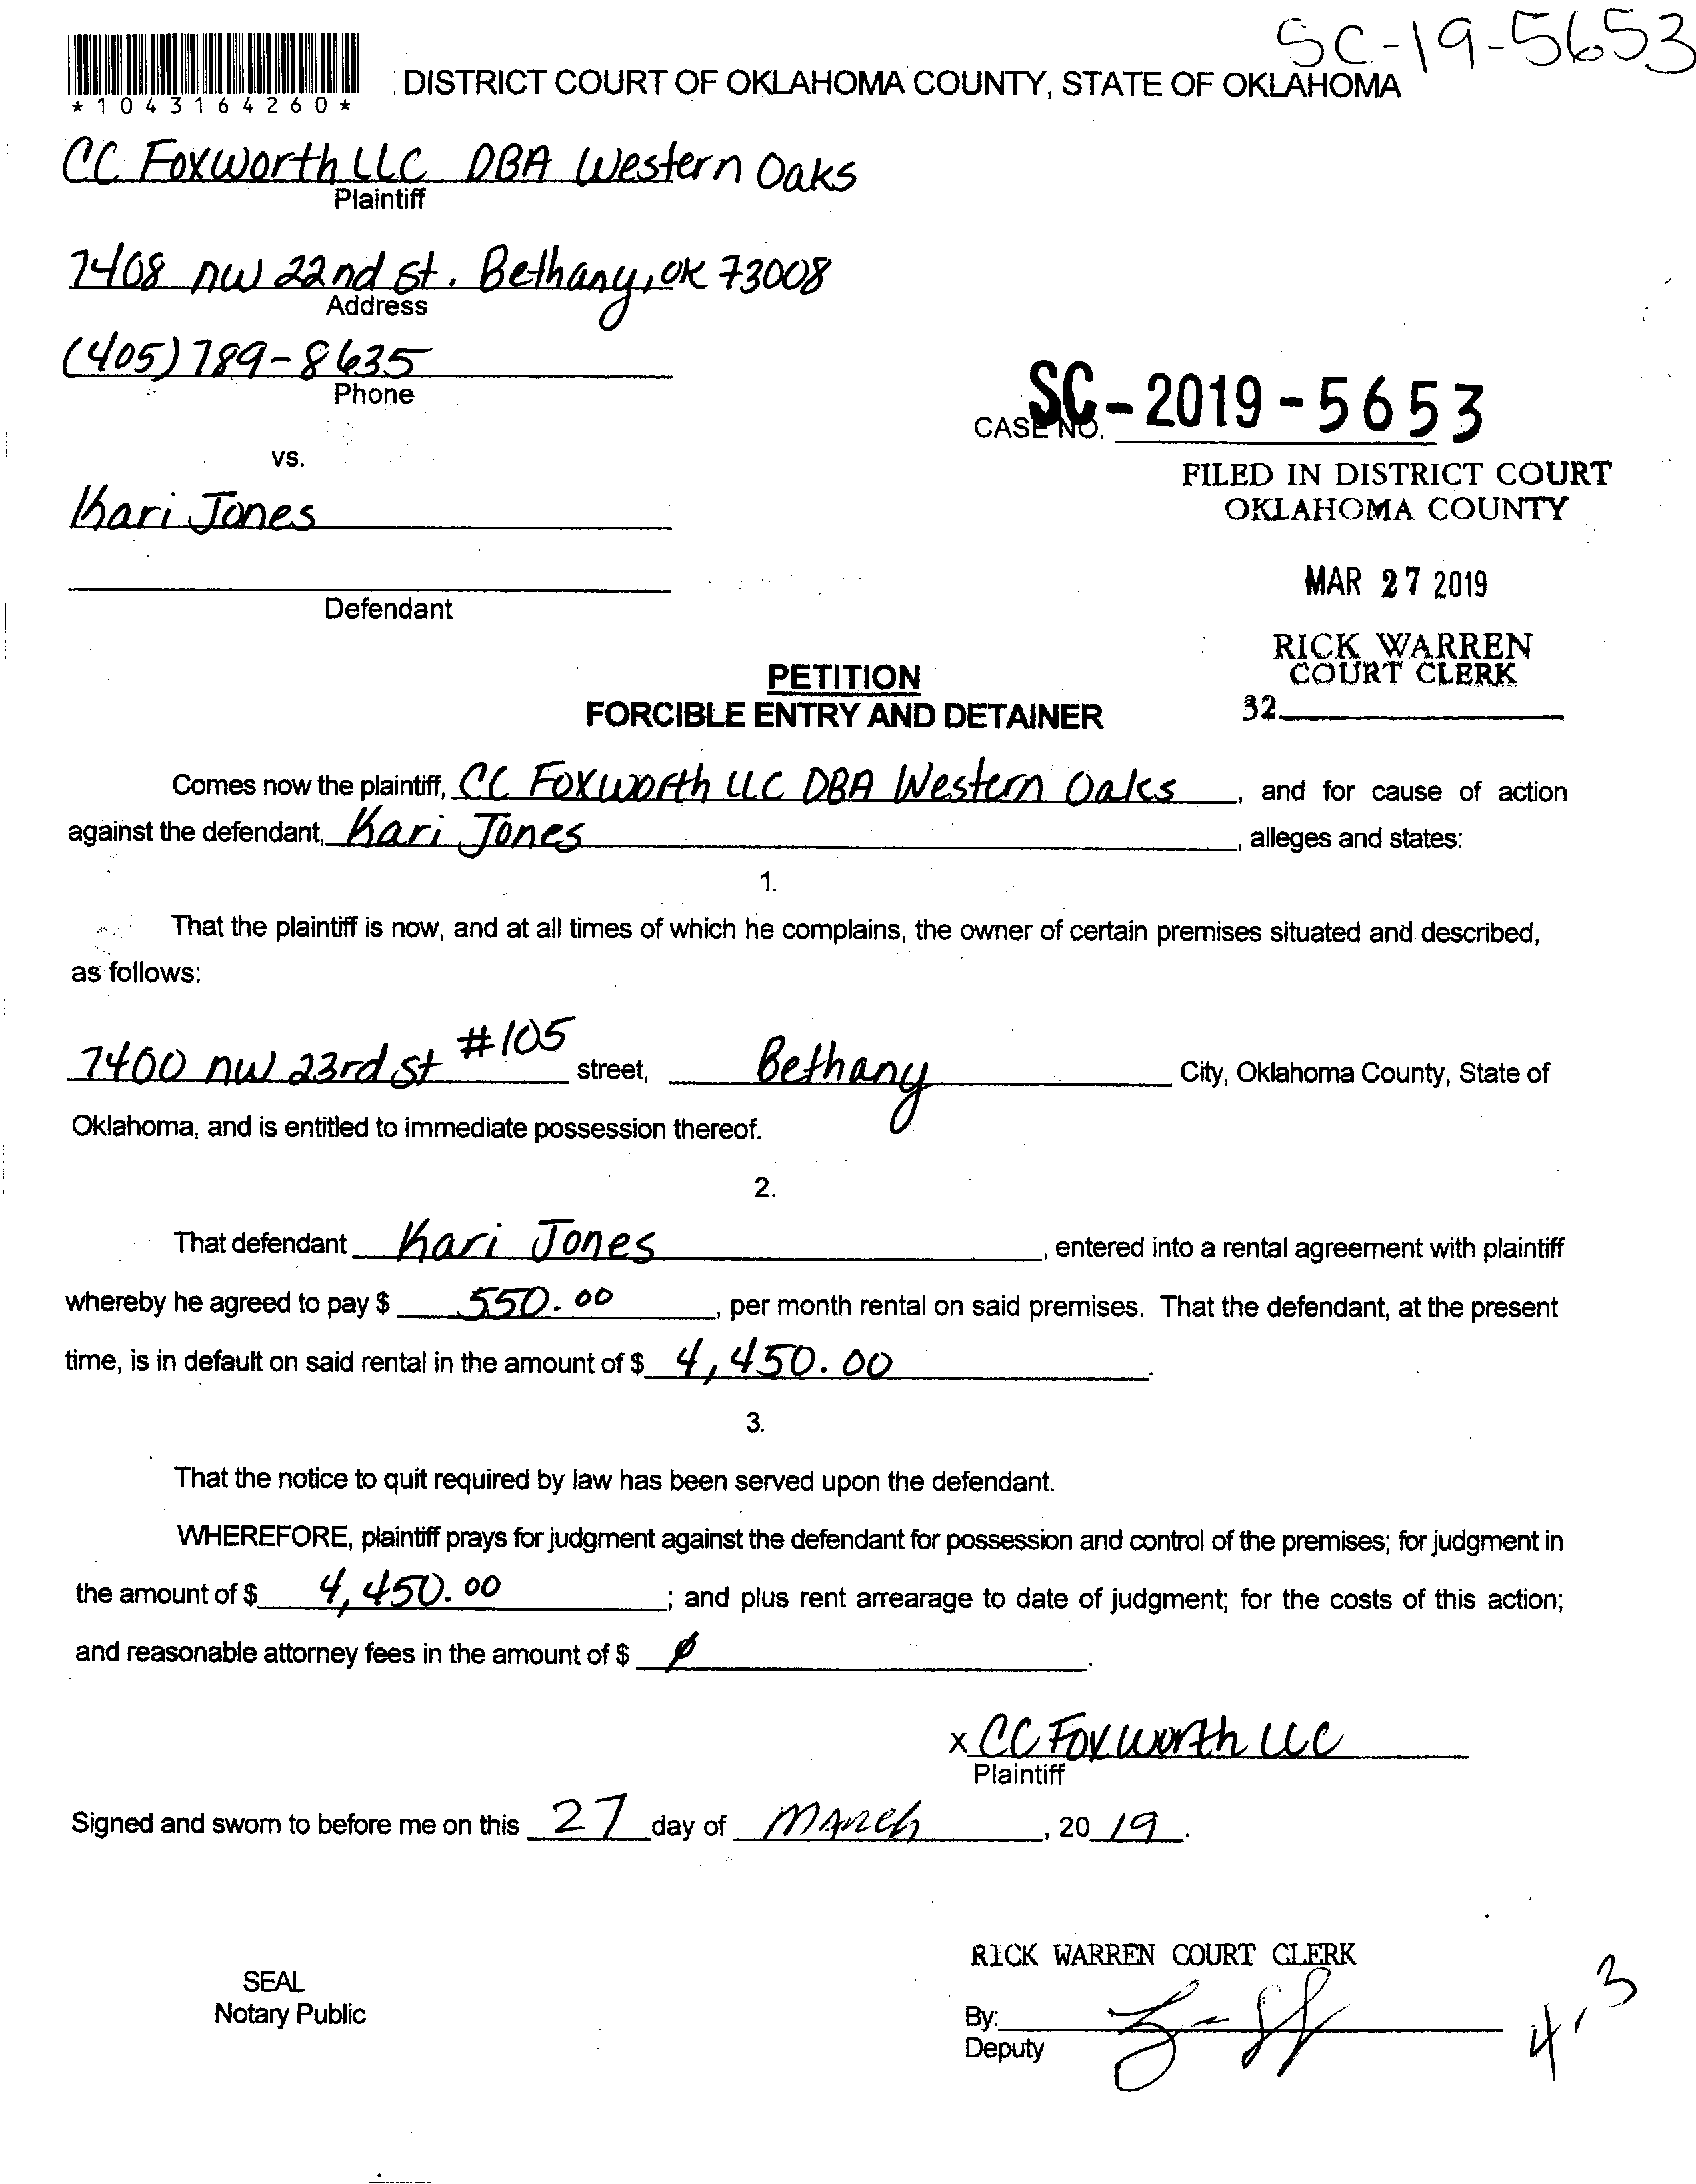 SC-19-5653
*1043164260*
DISTRICT COURT OF OKLAHOMA COUNTY, STATE OF OKLAHOMA
CC Foxworth LLC DBA Western Oaks
Plaintiff
7408 NW 22nd St. Bethany, OK 73008
Address
(405) 789-8635
Phone
CASE NO. SC-2019-5653
vs.
FILED IN DISTRICT COURT
OKLAHOMA COUNTY
Kari Jones
MAR 27 2019
Defendant
RICK WARREN
COURT CLERK
32
PETITION
FORCIBLE ENTRY AND DETAINER
Comes now the plaintiff, CC Foxworth LLC DBA Western Oaks, and for cause of action
against the defendant, Kari Jones, alleges and states:
1.
That the plaintiff is now, and at all times of which he complains, the owner of certain premises situated and described,
as follows:
7400 NW 23rd St #105 street, Bethany City, Oklahoma County, State of
Oklahoma, and is entitled to immediate possession thereof.
2.
That defendant Kari Jones, entered into a rental agreement with plaintiff
whereby he agreed to pay $ 550.00, per month rental on said premises. That the defendant, at the present
time, is in default on said rental in the amount of $ 4,450.00.
3.
That the notice to quit required by law has been served upon the defendant.
WHEREFORE, plaintiff prays for judgment against the defendant for possession and control of the premises; for judgment in
the amount of $ 4,450.00; and plus rent arrearage to date of judgment; for the costs of this action;
and reasonable attorney fees in the amount of $ ∅.
x CC Foxworth LLC
Plaintiff
Signed and sworn to before me on this 27 day of March, 2019.
RICK WARREN COURT CLERK
SEAL
Notary Public
By:
Deputy
4,3